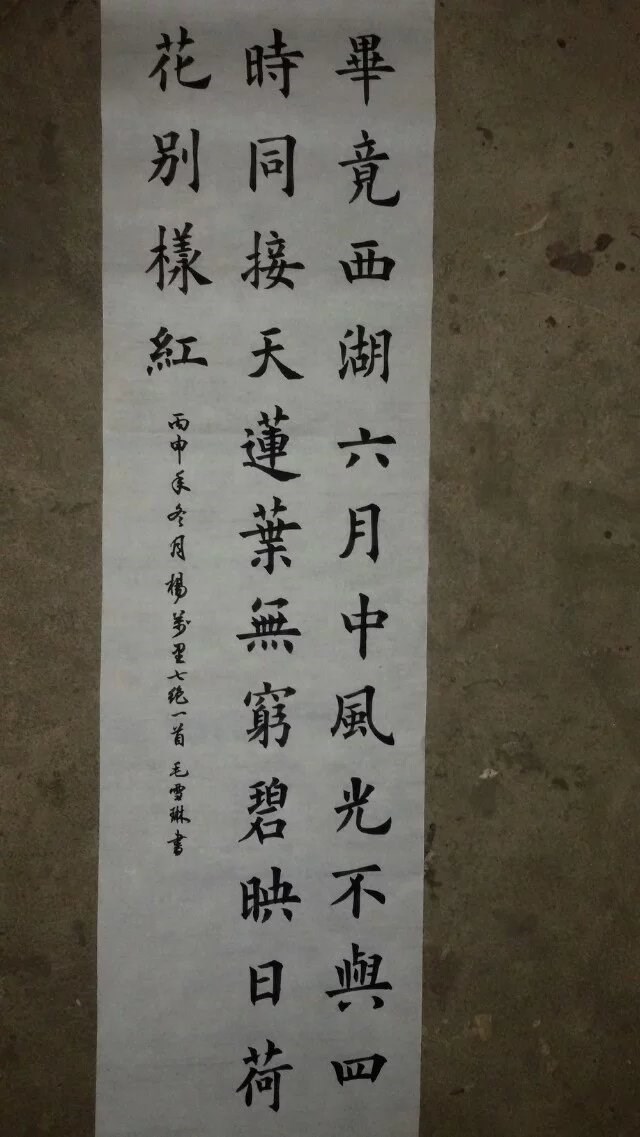 畢竟西湖六月中風光不與四
時同接天蓮葉無窮碧映日荷
花别樣紅
丙申年冬月楊萬里七絕一首毛雪琳書